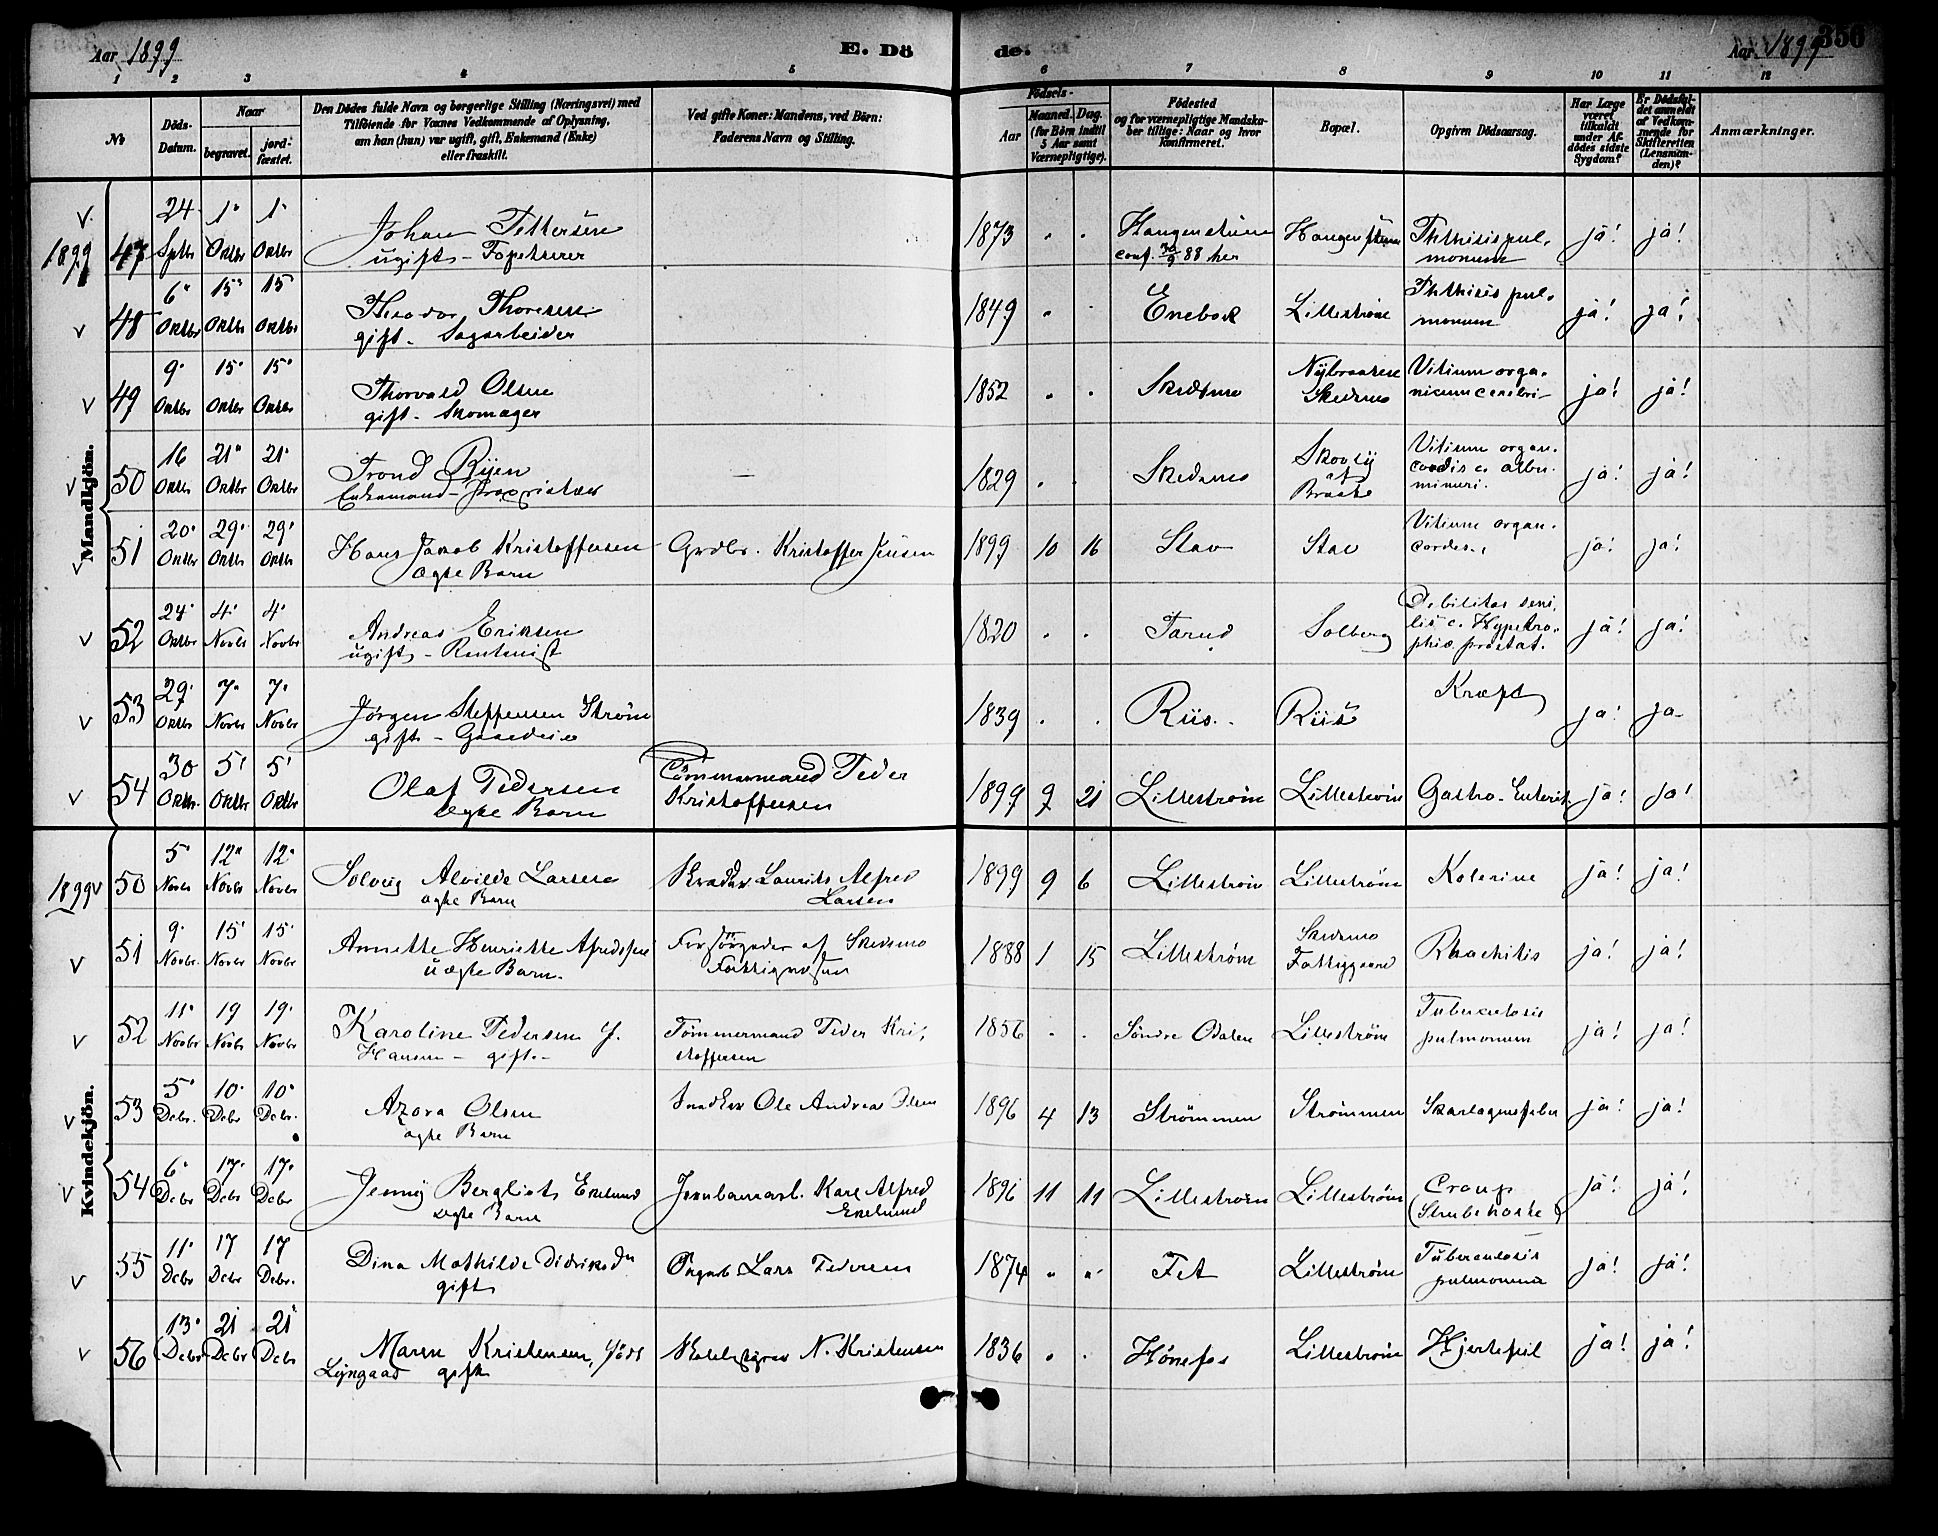 Aar 1899 E. Dö
de. Aar 1899 356
1 2 3 4 5 6 7 8 9 10 11 12
No
Döds-
Datum.
Naar
begravet.
jord-
fæstet.
Den Dödes fulde Navn og borgerlige Stilling (Næringsvei) med
Tilföiende for Voxnes Vedkommende af Oplysning,
om han (hun) var ugift, gift, Enkemand (Enke)
eller fraskilt.
Ved gifte Koner: Mandens, ved Börn:
Faderens Navn og Stilling.
Födsels-
Aar
Maaned. Dag.
(for Börn indtil
5 Aar samt
Værnepligtige).
Födested
og for værnepligtige Mandska-
ber tillige: Naar og hvor
konfirmeret.
Bopæl.
Opgiven Dödsaarsag.
Har Læge
været
tilkaldt
under Af-
dödes sidste
Sygdom?
Er Dödsfal-
det anmeldt
af Vedkom-
mende for
Skifteretten
(Lensman-
den)?
Anmærkninger.
Mandkjön.
1899 47 24 Sptbr 1. Oktbr 1. Oktbr Johan Pettersen 1873 Haugenstuen Haugenstuen Phthisis pul. ja! ja!
ugift - Tapetserer conf. 30/9 88 her monum
48 6. Oktbr 15. Oktbr 15 Oktbr Theodor Thoresen 1849 Enebak Lillestrøm Phthisis pul. ja! ja!
gift - Sagarbeider monum
49 9. Oktbr 15. Oktbr 15. Oktbr Thorvald Olsen 1852 Skedsmo Nybraaten Vitium orga. ja! ja!
gift - Skomager Skedsmo nicum cerebri
50 16 Oktbr 21. Oktbr 21. Oktbr Trond Ryen 1829 Skedsmo Skovly Vitium organ. ja! ja!
Enkemand - Proprietær af Braate cordis c. albu
minuri.
51 20. Oktbr 29. Oktbr 29. Oktbr Hans Jakob Kristoffersen Grdbr. Kristoffer Jensen 1899 10 16 Stav Stav Vitium organ. ja! ja!
ægte Barn cordis.
52 24. Oktbr 4. Novbr 4. Novbr Andreas Eriksen 1820 Tærud Solberg Debilitas seni, ja! ja!
ugift - Rentenist lis c. Hypetro.
phia prostat.
53 29. Oktbr 7. Novbr 7. Novbr Jørgen Steffensen Strøm 1839 Riis. Riis Kræft ja! ja
gift - Gaardeier
54 30 Oktbr. 5. Oktbr 5. Oktbr Olaf Pedersen Tømmermand Peder 1899 9 21 Lillestrøm Lillestrøm Gastro-Enterit ja! ja!
ægte Barn Kristoffersen
Kvindekjön.
1899 50 5. Novbr 12. Novbr 12. Novbr Solveig Alvilde Larsen Skrædder Laurits Alfred 1899 9 6 Lillestrøm Lillestrøm Kolerine ja! ja!
ægte Barn Larsen
51 9. Novbr. 15. Novbr 15. Novbr Annette Henriette Alfredsen Forsørgedes af Skedsmo 1888 1 15 Lillestrøm Skedsmo Rhachitis ja! ja!
uægte Barn. Fattigvæsen Fattiggaard
52 11. Novbr 19 Novbr 19. Novbr Karoline Pedersen f. Tømmermand Peder Kri, 1856 Søndre Odalen Lillestrøm Tuberculosis ja! ja!
Hansen - gift - stoffersen pulmonum
53 5. Debr. 10. Debr 10. Debr. Azora Olsen Snedker Ole Andreas Olsen 1896 4 13 Strømmen Strømmen Skarlagensfeber ja! ja!
ægte Barn
54 6. Debr 17. Debr 17. Debr Jenny Bergliot Ekelund Jernbanearb. Karl Alfred 1896 11 11 Lillestrøm Lillestrøm Croup ja! ja!
ægte Barn Ekelund (Strubehoste)
55 11. Debr 17 Debr 17 Debr. Dina Mathilde Didriksdn Lars Pedersen 1874 Fet Lillestrøm Tuberculosis ja! ja!
gift pulmonum
56 13. Debr 21 Debr 21 Debr Maren Kristensen, født N. Kristensen 1836 Hønefos Lillestrøm Hjertefeil ja! ja!
Lyngaas gift